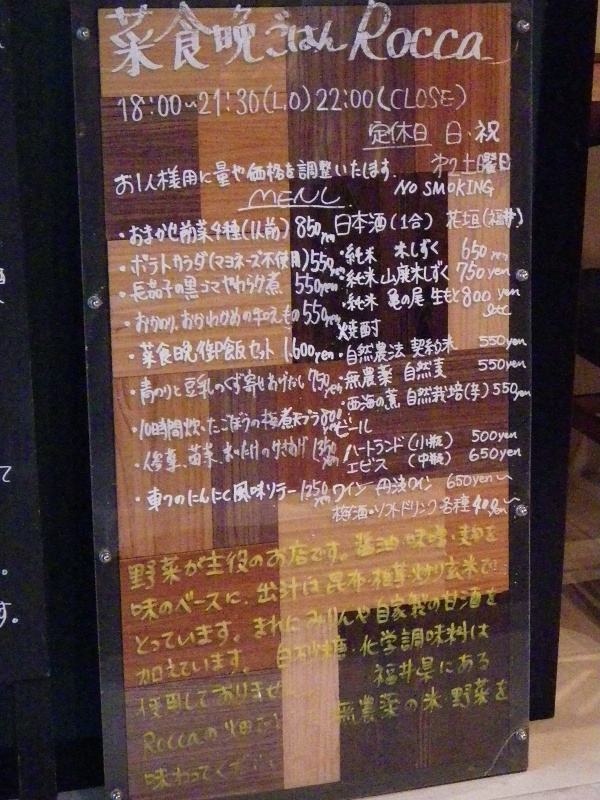 菜食晩ごはん Rocca
18:00~21:30(L.O) 22:00(CLOSE)
定休日 日・祝
第2土曜日
お1人様用に量や価格を調整いたします。
NO SMOKING
MENU
・おまかせ前菜4種(1人前) 850yen
・ポテトサラダ(マヨネーズ不使用) 550yen
・長茄子の黒ゴマやわらか煮 550yen
・おかのり、おかわかめの和えもの 550yen
・菜食晩御飯セット 1,600yen
・青のりと豆乳のくず寄せあげだし 750yen
・10時間炊いたごぼうの梅煮天プラ 800
・人参葉、苗菜、まいたけのかきあげ 1350yen
・車フのにんにく風味ソテー 1250yen
日本酒(1合) 花垣(福井)
・純米 米しずく 650yen
・純米 山廃米しずく 750yen
・純米 亀の尾 生もと 800yen
etc
焼酎
・自然農法 契約米 550yen
・無農薬 自然麦 550yen
・西海の薫 自然栽培(芋) 550yen
ビール
ハートランド(小瓶) 500yen
エビス (中瓶) 650yen
ワイン 丹波ワイン 650yen~
梅酒・ソフトドリンク各種 400yen~
野菜が主役のお店です。醤油・味噌・麹を
味のベースに、出汁は昆布・椎茸・炒り玄米で
とっています。まれにみりんや自家製の甘酒を
加えています。 白砂糖・化学調味料は
使用しておりません 福井県にある
Roccaの畑 無農薬の米・野菜を
味わってください